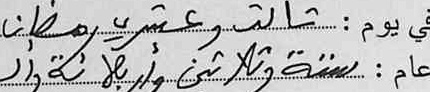 في يوم : ثالث وعشري رمضان
عام : ستة وثلاثين وأربعمائة وأل